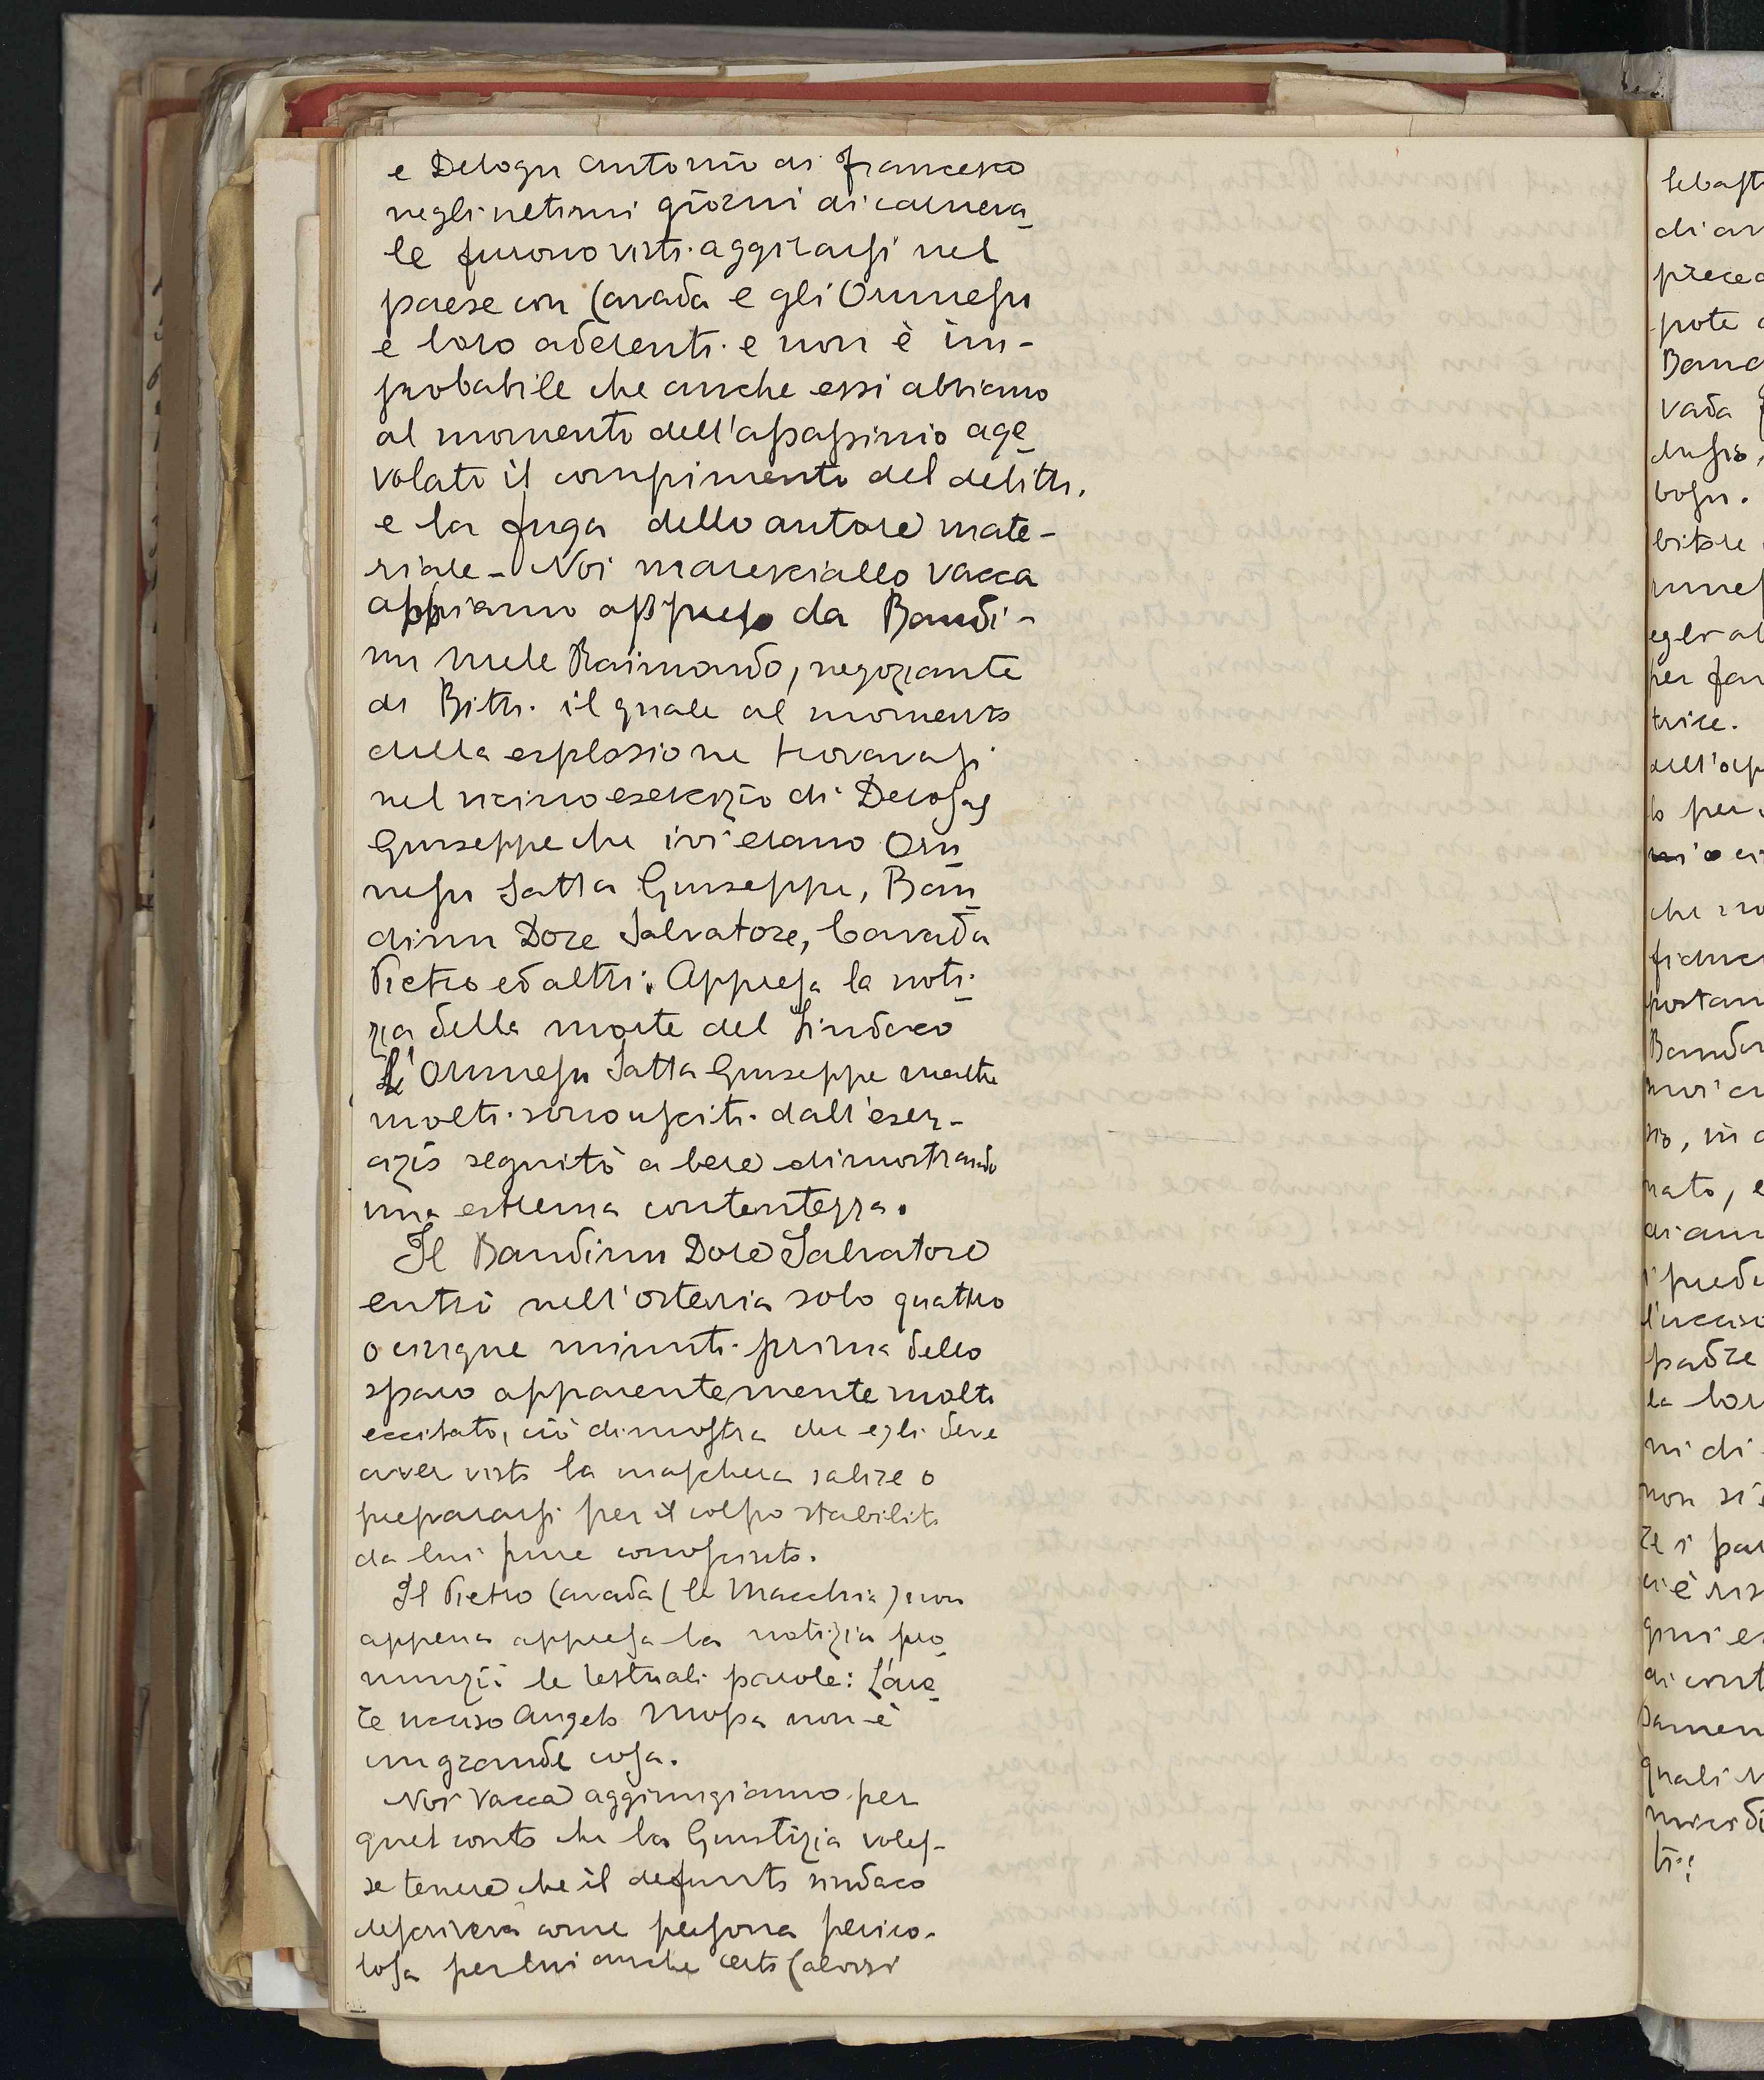 e Delogu Antonio di Francesco
negli ultimi giorni di carneva_
le furono visti aggirarsi nel
paese con Cavada e gli Orunesu
e loro aderenti e non è im-
probabile che anche essi abbiano
al momento dell'assassinio age_
volato il compimento del delitto,
e la fuga dello autore mate-
riale - Noi maresciallo Vacca
abbiamo appreso da Bandi-
nu Mele Raimondo, negoziante
di Bitti il quale al momento
della esplosione trovavasi
nel vicino esercizio di
Giuseppe che ivi erano Oru_
nesu Satta Giuseppe, Ban_
dinu Dore Salvatore, Cavada
Pietro ed altri. Appresa la noti_
zia della morte del Sindaco
L'Orunesu Satta Giuseppe mentre
molti sono usciti dall'eser-
cizio seguitò a bere dimostrando
una estrema contentezza.
Il Bandinu Dore Salvatore
entrò nell'osteria solo quattro
o cinque minuti prima dello
sparo apparentemente molto
eccitato, ciò dimostra che egli deve
aver visto la maschera salire o
prepararsi per il colpo stabilito
da lui pure conosciuto.
Il Pietro Cavada (le Macchia) non
appena appresa la notizia pro_
nunziò le testuali parole: L'ave_
re ucciso Angelo Mossa non è
un grande cosa.
Noi Vacca aggiungiamo per
quel conto che la Giustizia voles-
se tenere che il defunto sindaco
descriveva come persona perico-
losa per lui anche certo Calvisi
sebast
di an
preced
pote
Band
vada
bitore
egli a
per far
trice.
lo per
che no
fiduci
Bandi
nato, e
l'ucciso
padre
la lor
ni di
non si
di cont
quali
ti: